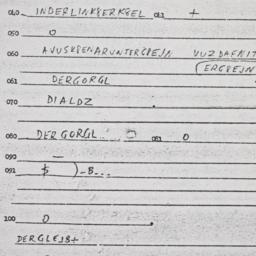 040 INDERLINKSERKSEL 042 +
050 0
060 AVUSKSENARUNTERGREJN VUZDAFNIT
(ERGREJN
061 DERGORGL
070 DIALDZ
080 DERGORGL 083 0
090 —
091 $ )-B...
100 0
DERGLEJB+